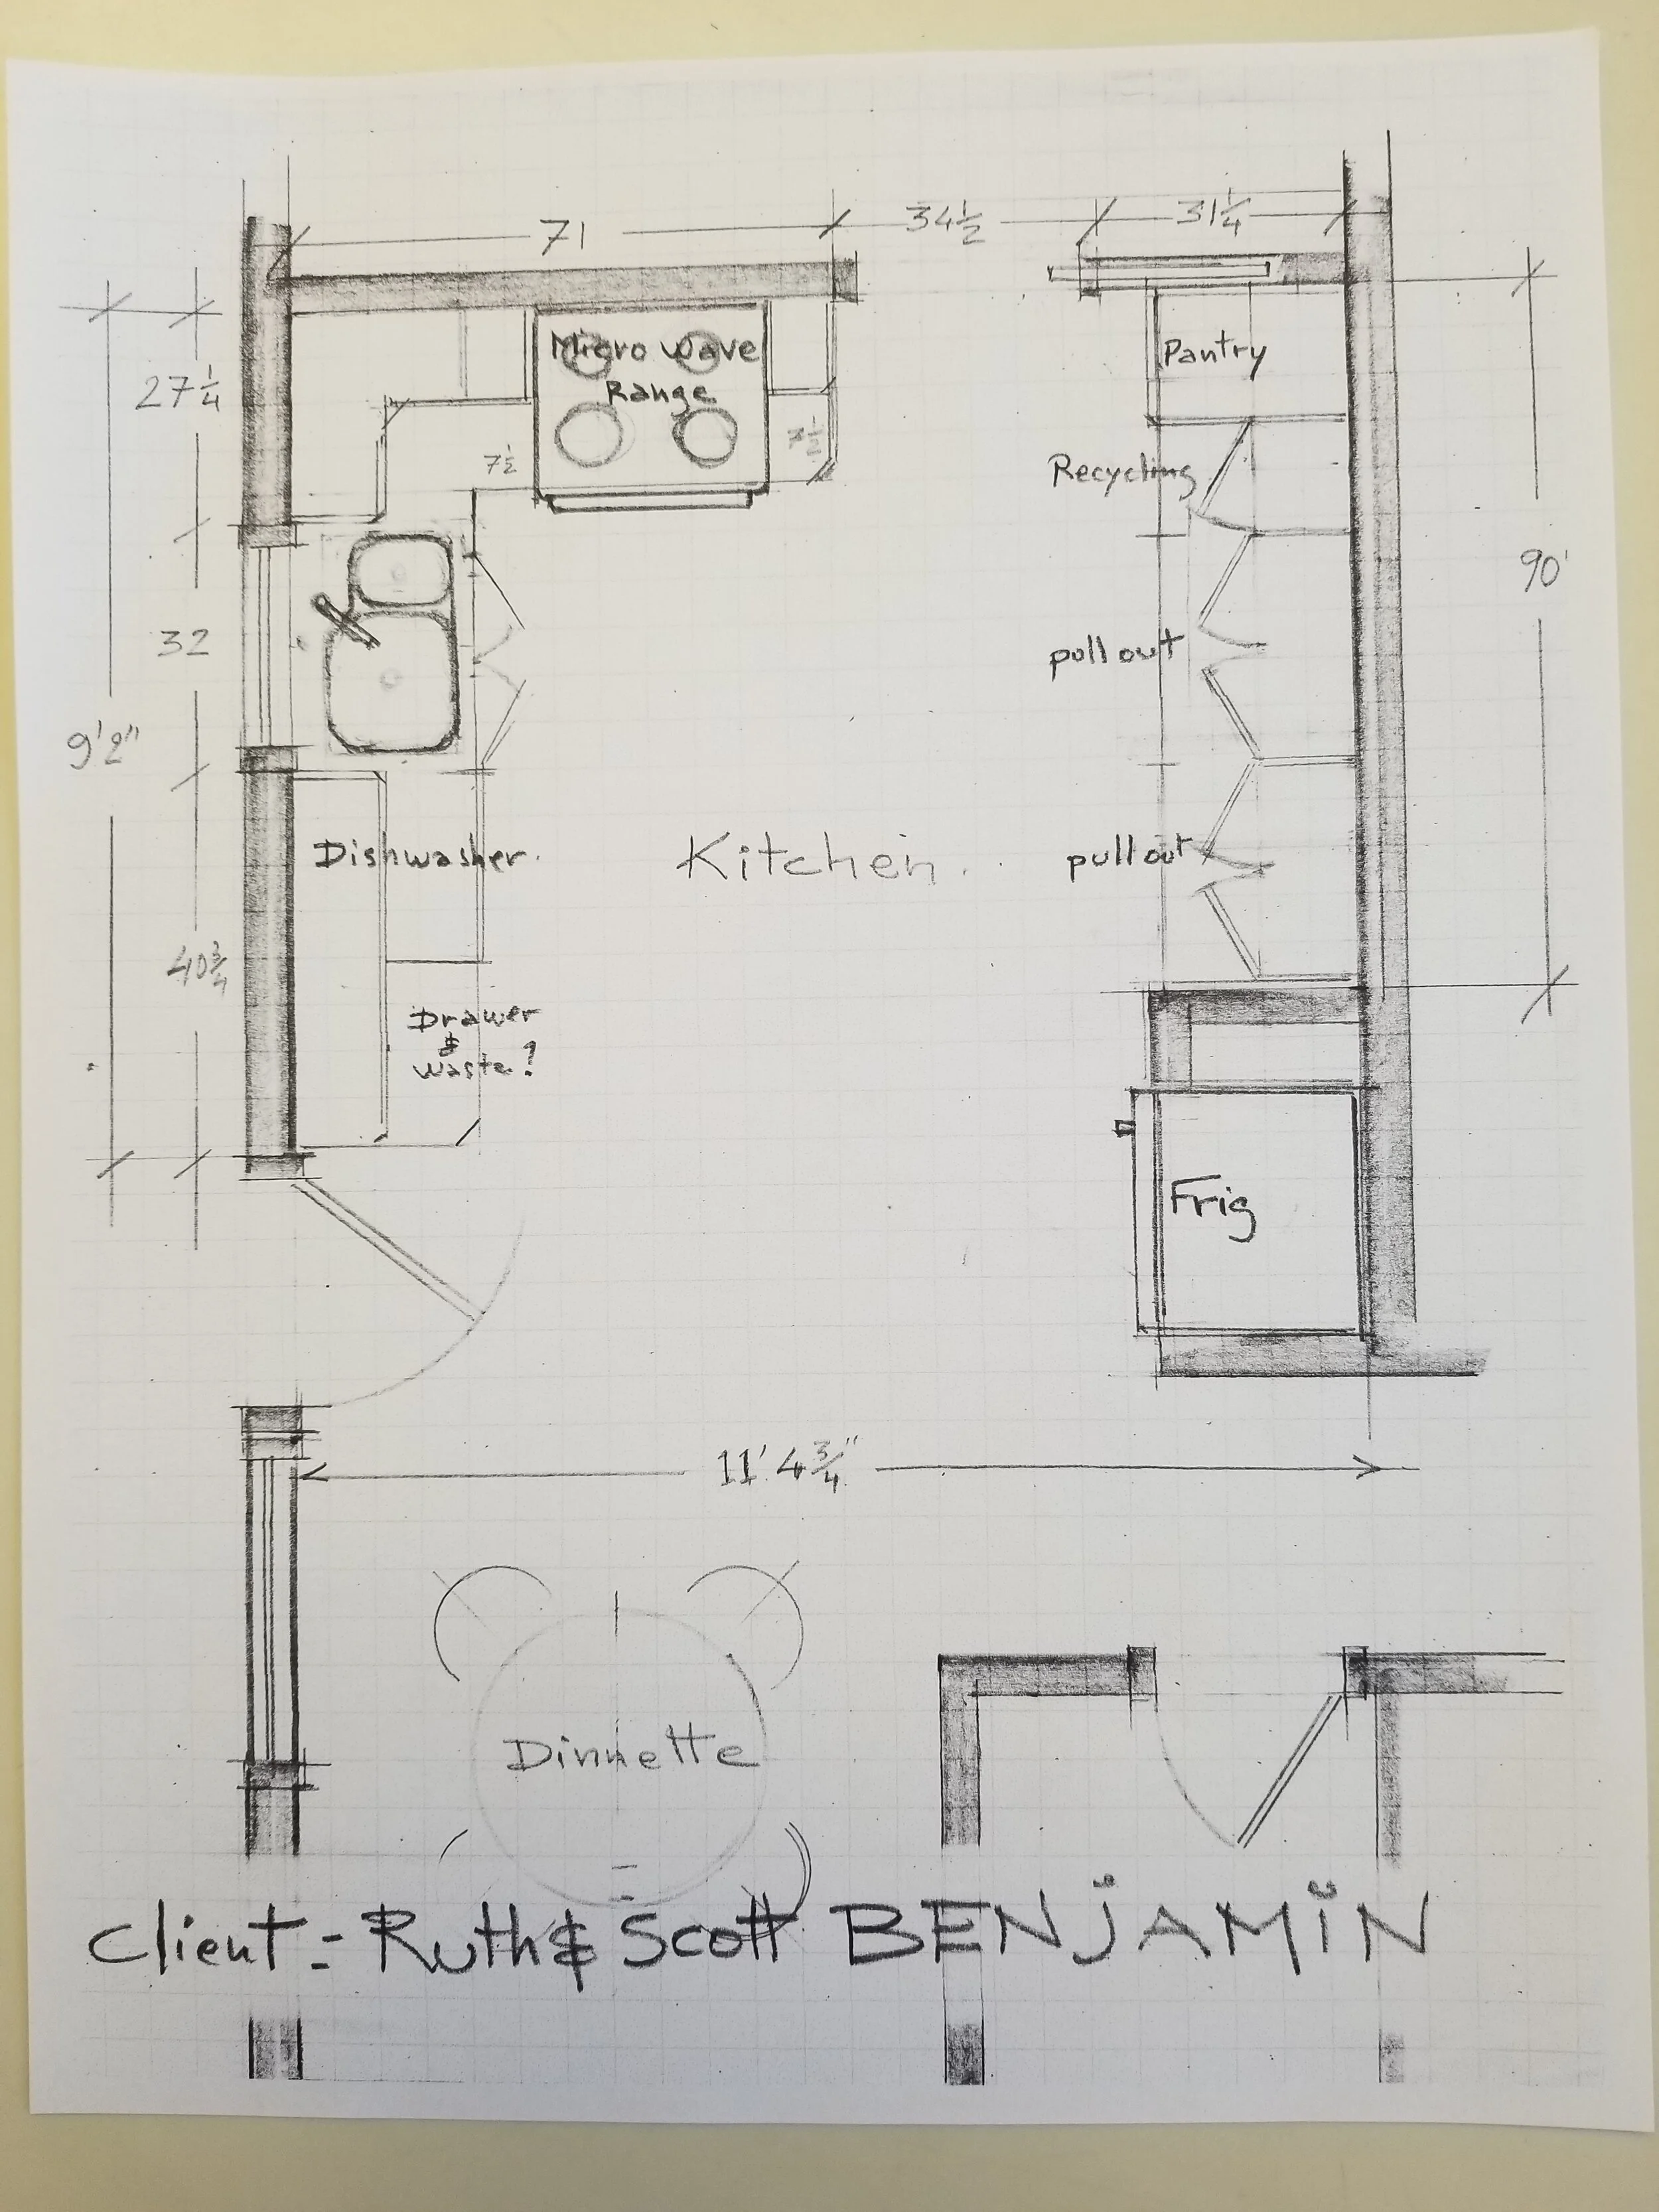 71
34 1/2
31 1/4
27 1/4
Micro wave
Range
7 1/2
7 1/2
Pantry
Recycling
90'
32
pull out
9'2"
Dishwasher.
Kitchen.
pull out
40 3/4
Drawer
&
waste?
Frig
11' 4 3/4"
Dinnette
Client = Ruth & Scott BENJAMIN